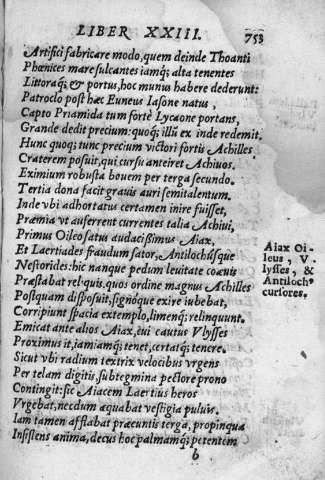 LIBER XXIII. 753
Artifici fabricare modo, quem deinde Thoanti
Phœnices mare sulcantes iamq; alta tenentes
Littoraq; & portus, hoc munus habere dederunt:
Patroclo post hæc Euneus Iasone natus,
Capto Priamida tum fortè Lycaone portans,
Grande dedit precium: quoq; illũ ex inde redemit.
Hunc quoq; tunc precium victori fortis Achilles
Craterem posuit, qui cursu anteiret Achiuos.
Eximium robusta bouem per terga secundo.
Tertia dona facit grauis auri semitalentum.
Inde vbi adhortatus certamen inire fuisset,
Præmia vt auferrent currentes talia Achiui,
Primus Oileo satus audacißimus Aiax,
Et Laertiades fraudum sator, Antilochúsque
Nestorides: hic nanque pedum leuitate coæuis
Præstabat reliquis, quos ordine magnus Achilles
Postquam disposuit, signóque exire iubebat,
Corripiunt spacia extemplo, limenq; relinquunt.
Emicat ante alios Aiax, tui cautus Vlysses
Proximus it, iamiamq; tenet, certatq; tenere.
Sicut vbi radium textrix velocibus vrgens
Per telam digitis, subtegmina pectore prono
Contingit: sic Aiacem Laertius heros
Vrgebat, necdum æquabat vestigia puluis.
Iam tamen afflabat præeuntis terga, propinqua
Insistens anima, decus hoc palmamq; petentem
b
Aiax Oi-
leus, V-
lysses, &
Antiloch9
cursores.